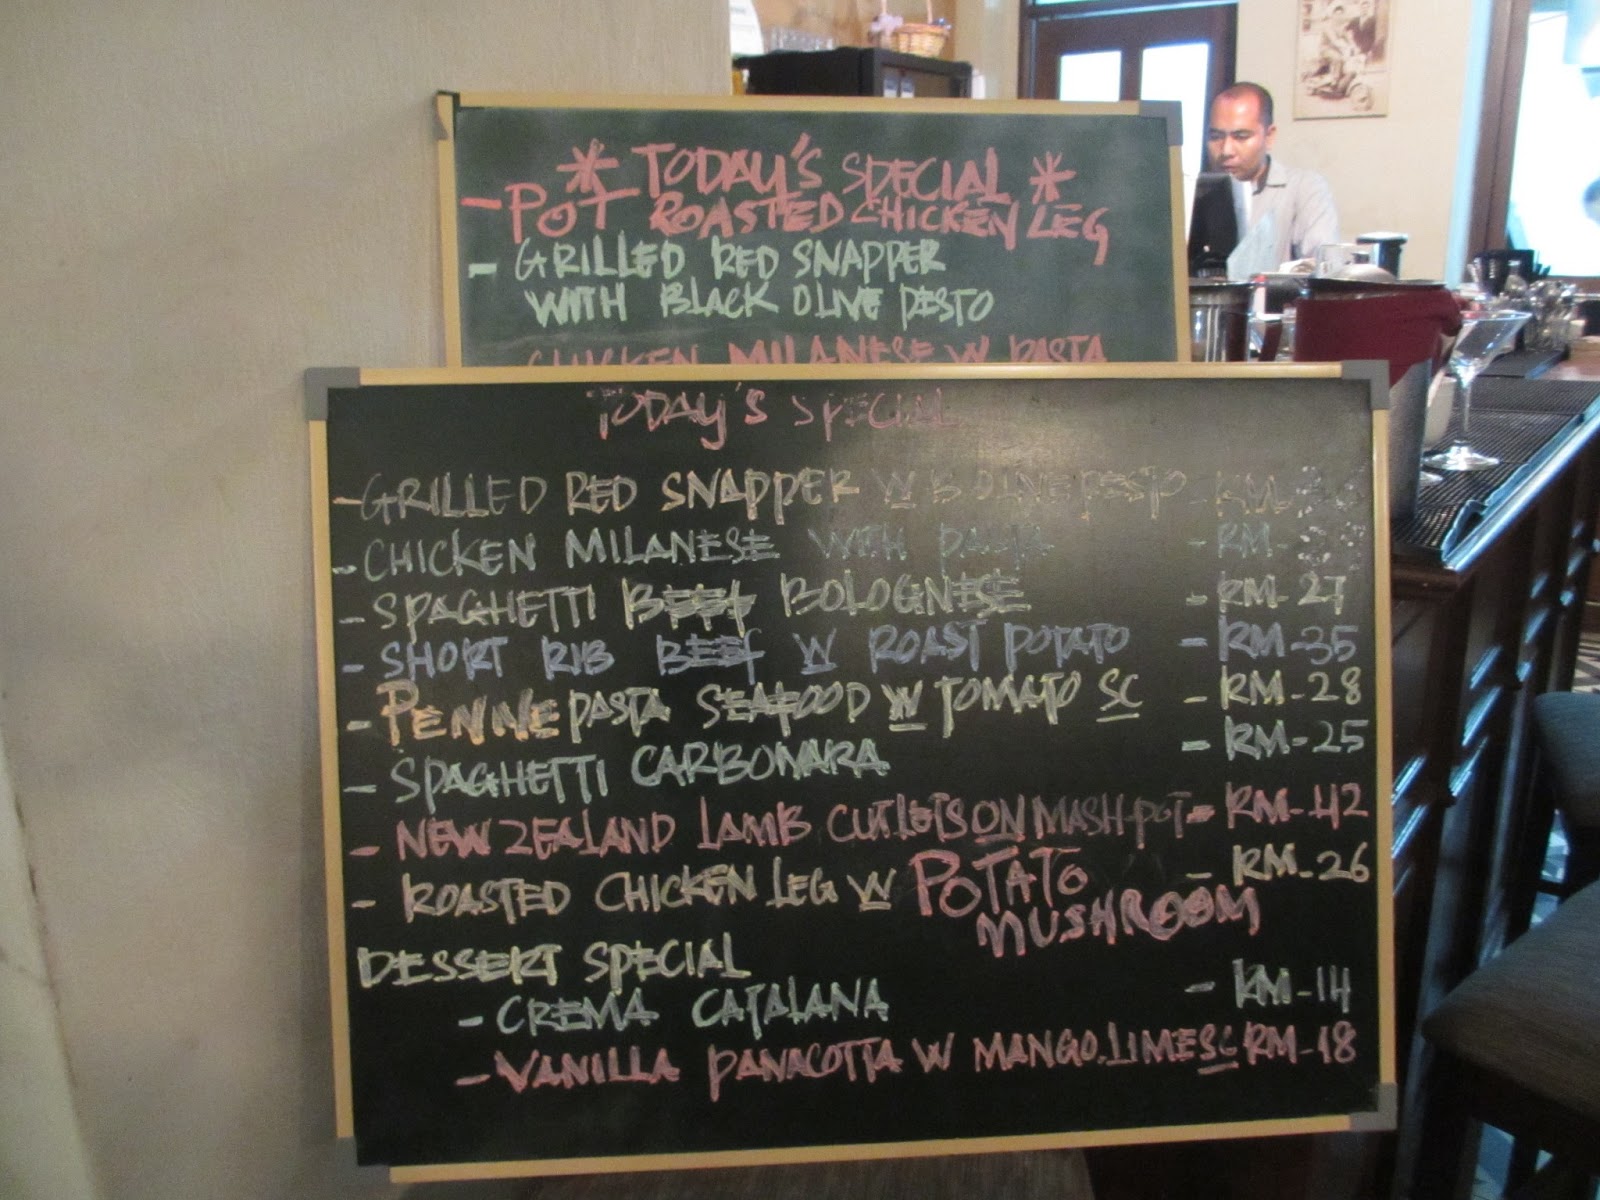 * TODAY'S SPECIAL *
- POT ROASTED CHICKEN LEG
- GRILLED RED SNAPPER
WITH BLACK OLIVE PESTO
CHICKEN MILANESE W PASTA
TODAY'S SPECIAL
- GRILLED RED SNAPPER W B.OLIVE PESTO - RM-
- CHICKEN MILANESE WITH PASTA - RM-
- SPAGHETTI BEEF BOLOGNESE - RM-27
- SHORT RIB BEEF W ROAST POTATO - RM-35
- PENNE PASTA SEAFOOD W TOMATO SC - RM-28
- SPAGHETTI CARBONARA - RM-25
- NEW ZEALAND LAMB CUTLETS ON MASH-POT - RM-42
- ROASTED CHICKEN LEG W POTATO - RM-26
MUSHROOM
DESSERT SPECIAL
- CREMA CATALANA - RM-14
- VANILLA PANACOTTA W MANGO.LIME SC RM-18